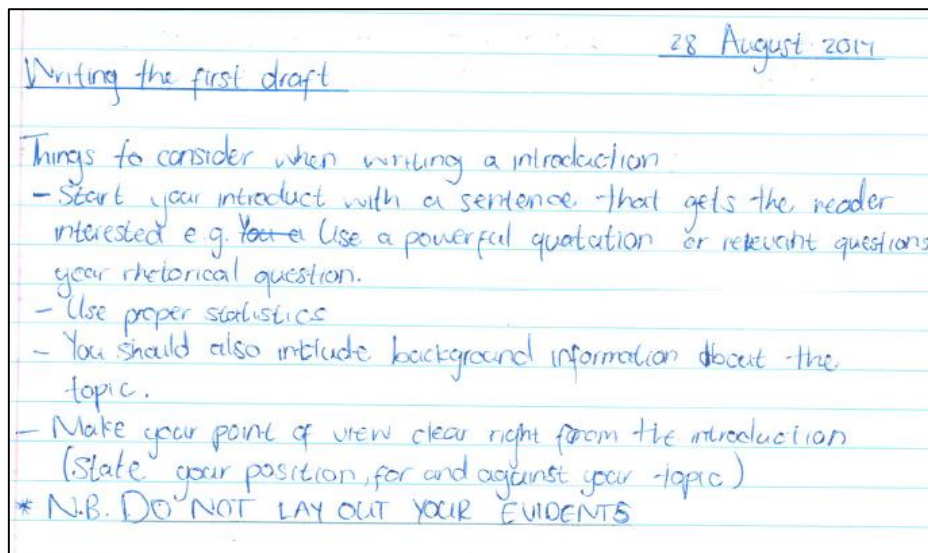 28 August 2017
Writing the first draft
Things to consider when writing a introduction:
- Start your introduct with a sentence that gets the reader
interested e.g. You a Use a powerful quotation or relevant questions
your rhetorical question.
- Use proper statistics
- You should also include background information about the
topic.
- Make your point of view clear right from the introduction
(State your position, for and against your topic)
* N.B. DO NOT LAY OUT YOUR EVIDENTS